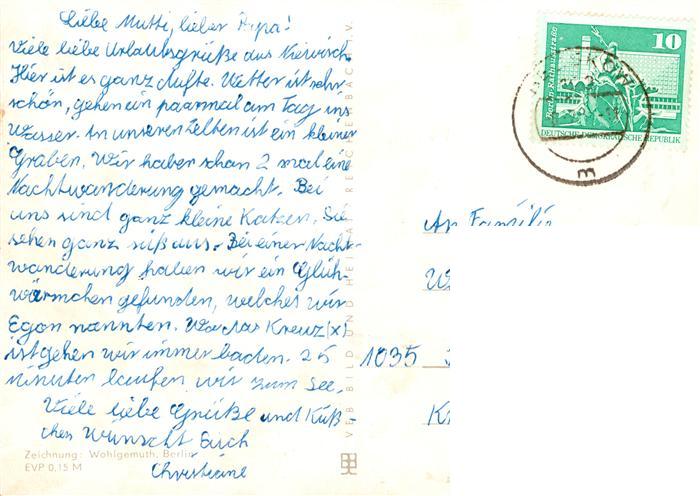 Liebe Mutti, lieber Papa!
Viele liebe Urlaubsgrüße aus Kerwisch.
Hier ist es ganz dufte. Wetter ist sehr
schön, gehen ein paarmal am Tag ins
Wasser. In unseren Zelten ist ein kleiner
Graben. Wir haben schon 2 mal eine
Nachtwanderung gemacht. Bei
uns sind ganz kleine Katzen. Sie
sehen ganz süß aus. Bei einer Nacht-
wanderung haben wir ein Glüh-
würmchen gefunden, welches wir
Egon nannten. Wo das Kreuz (x)
ist gehen wir immer baden. 25
minuten laufen wir zum See.
Viele liebe Grüße und Küß-
chen wünscht Euch
Christiane
Zeichnung: Wohlgemuth, Berlin
EVP 0,15 M
VEB BILD UND HEIMAT REICHENBACH I.V.
10
Berlin-Rathausstraße
DEUTSCHE DEMOKRATISCHE REPUBLIK
An Familie
1035